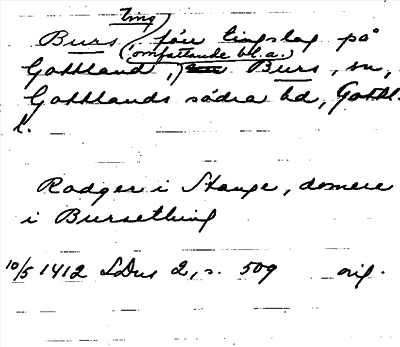 ting
Burs, förr tingslag på
(omfattande bl.a.)
Gottland, Burs, sn,
Gotlands södra hd, Gotl.
l.
Rodger i Stange, domere
i Bursething
10/5 1412 SDns 2, s. 509 orig.